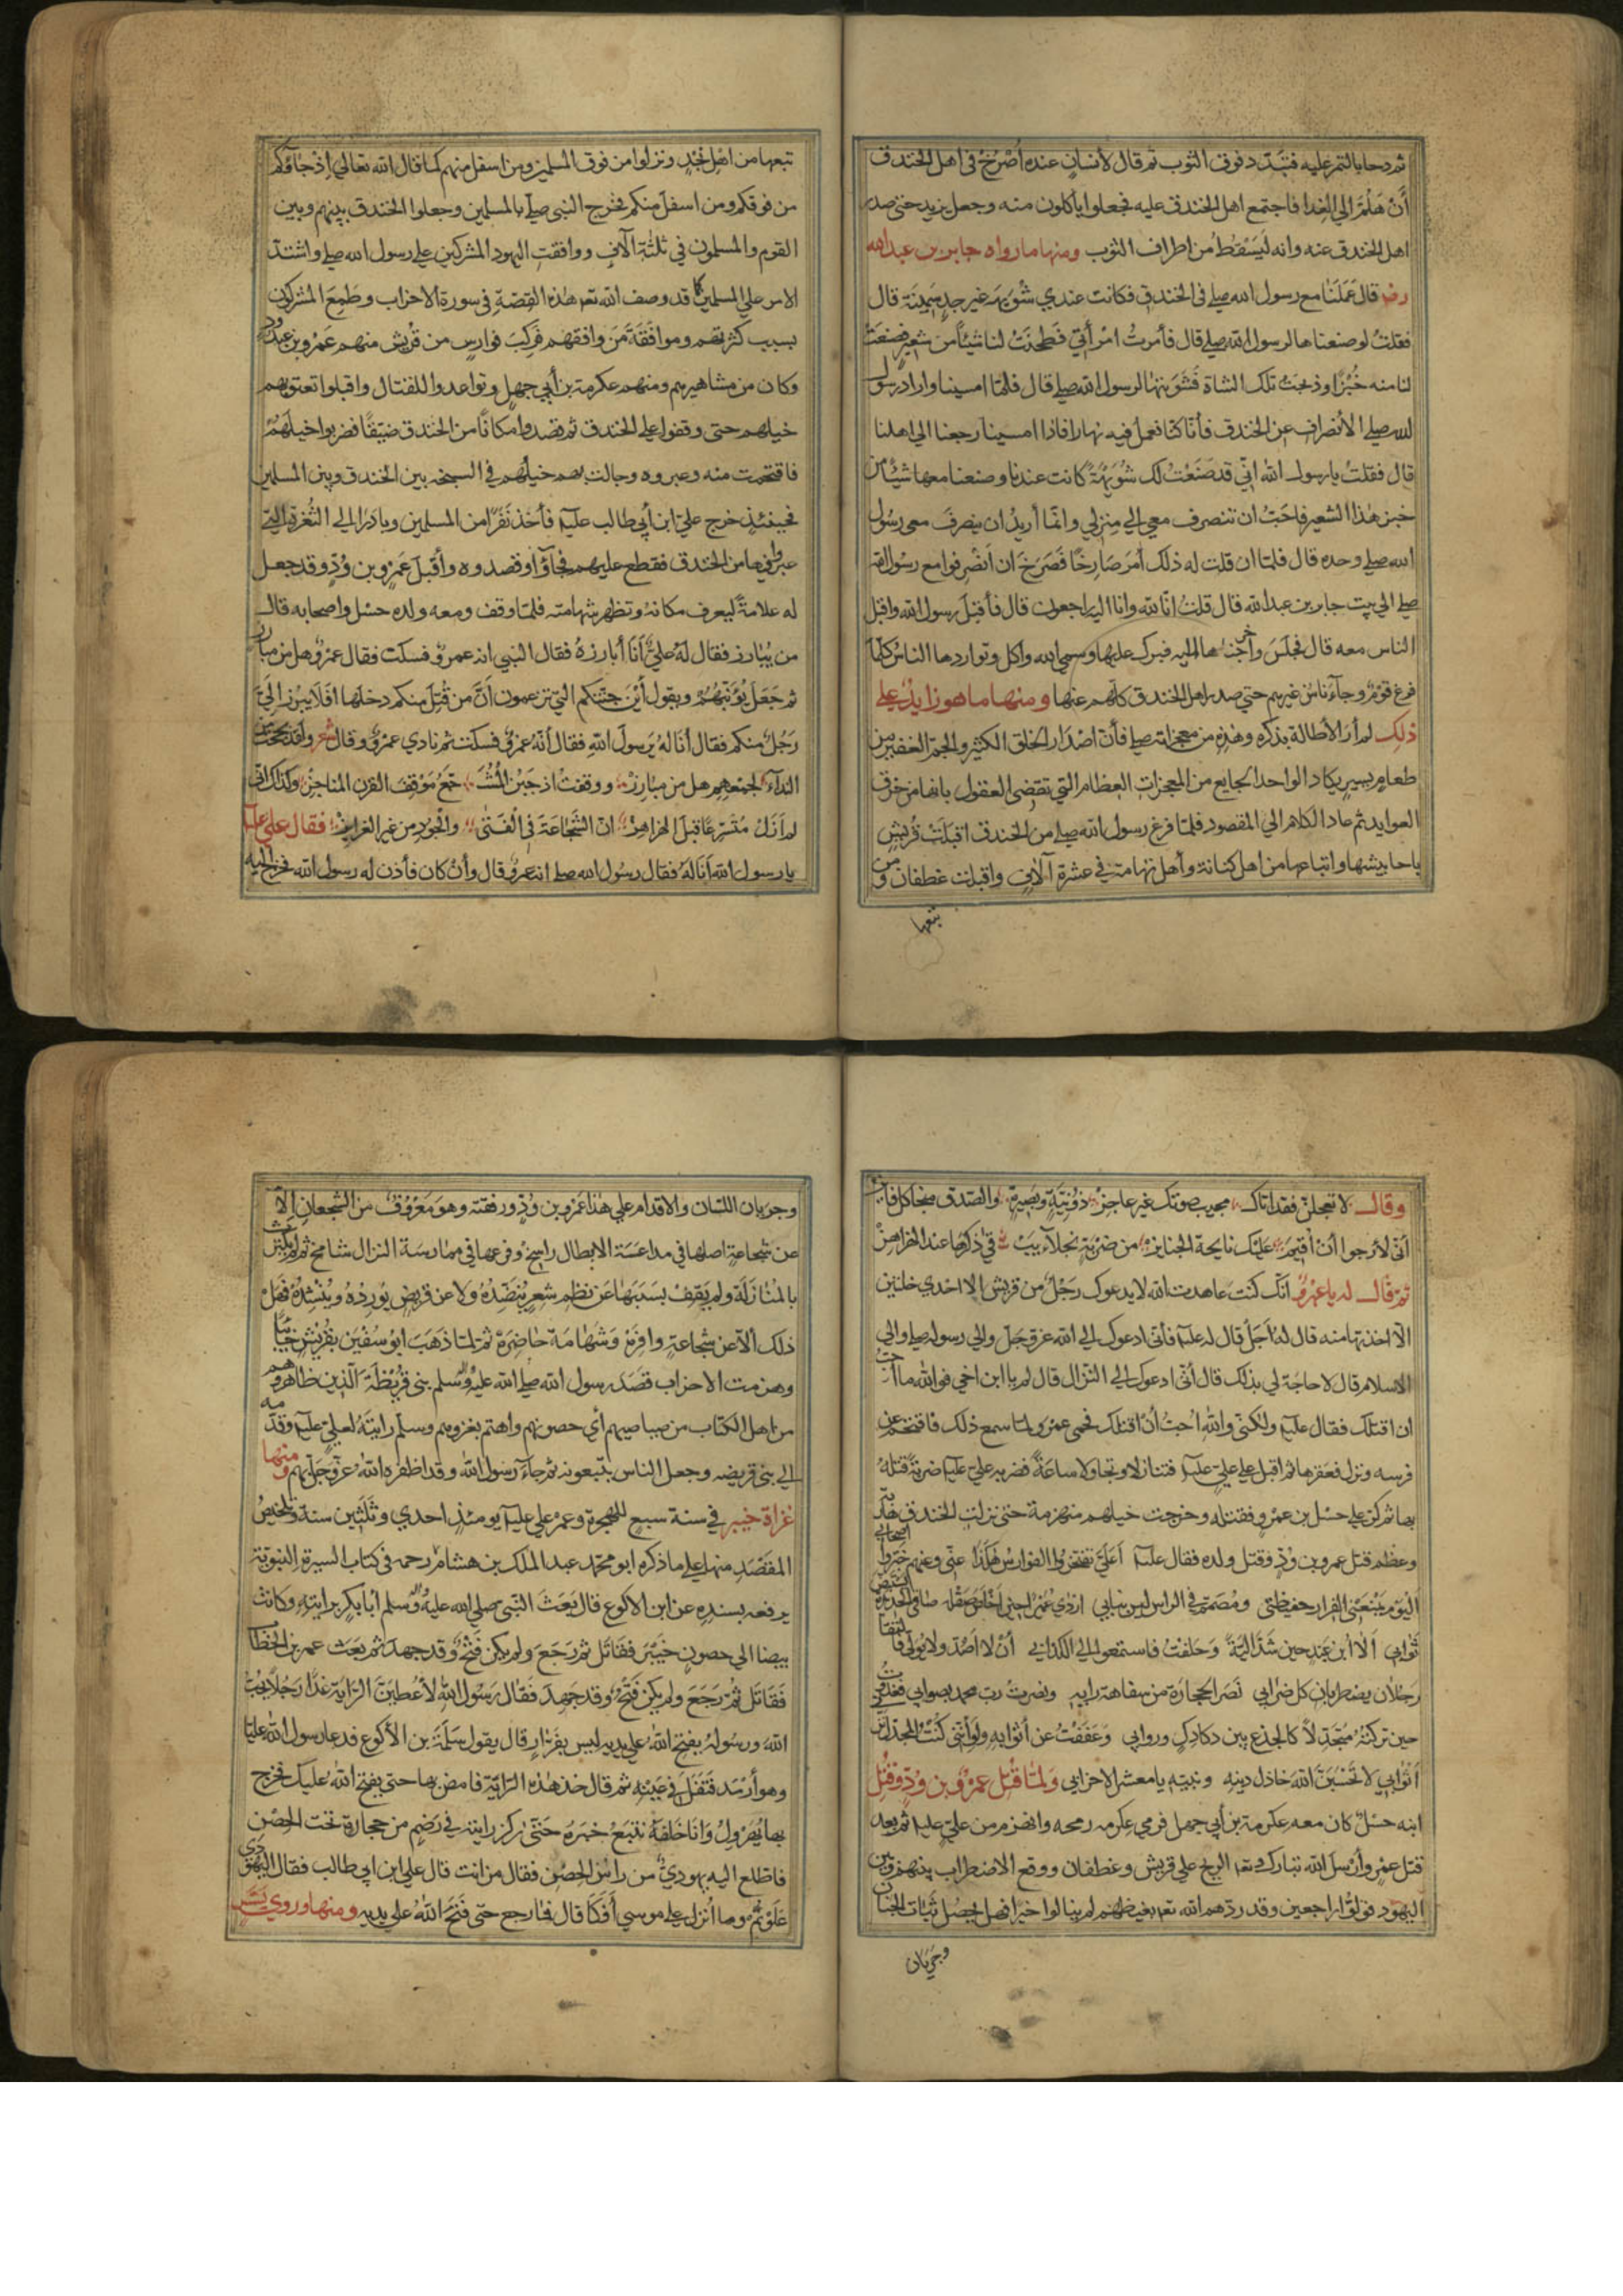 ثم دحا بالتمر عليه فتبدد فوق الثوب ثم قال لأنسان عنده أصرخ في اهل الخندق
أن هلم الي الغدا فاجتمع اهل الخندق عليه فجعلوا يأكلون منه وجعل يزيد حتى صدر
اهل الخندق عنه وانه ليسقط من اطراف الثوب ومنها ما رواه جابر بن عبد الله
رضه قال عملنا مع رسول الله صلے فى الخندق فكانت عندي شويهة غير جد سمينة قال
فقلت لو صنعناها لرسول الله صلے قال فأمرت امرأتي فطحنت لنا شيئا من شعير فصنعت
لنا منه خبزا وذبحت تلك الشاة فشويتها لرسول الله صلے قال فلما امسينا واراد رسول
الله صلے الأنصراف عن الخندق فأنا كنا نعمل فيه نهارا فاذا امسينا رجعنا الى اهلنا
قال فقلت يا رسول الله اني قد صنعت لك شويهة كانت عندنا وصنعنا معها شيئا من
خبز هذا الشعير فاحب ان تنصرف معي الي منزلي وانما أريد ان ينصرف معي رسول
الله صلے وحده قال فلما ان قلت له ذلك أمر صارخا فصرخ ان انصرفوا مع رسول الله
صلے الي بيت جابر بن عبد الله قال قلت انا لله وانا اليه راجعون قال فأقبل رسول الله واقبل
الناس معه قال فجلس وأخرجناها اليه فبرك عليها وسمي الله واكل وتواردها الناس كلما
فرغ قوم وجاء ناس غيرهم حتي صدر اهل الخندق كلهم عنها ومنها ما هو زايد على
ذلك لم أر الأطالة بذكره وهذه من معجزاته صلے فأن اصدار الخلق الكثير والجم الغفير من
طعام يسير يكاد الواحد الجايع من المعجزات العظام التي تقتضى العقول بانها من خرق
العوايد ثم عاد الكلام الي المقصود فلما فرغ رسول الله صلے من الخندق اقبلت قريش
باحابيشها واتباعها من اهل كنانة وأهل تهامة في عشرة آلاف واقبلت غطفان ومن
تبعها
تبعها من اهل نجد ونزلوا من فوق المسلمين ومن اسفل منهم كما قال الله تعالي اذ جاؤكم
من فوقكم ومن اسفل منكم فخرج النبى صلے بالمسلمين وجعلوا الخندق بينهم وبين
القوم والمسلمون في ثلثة آلاف ووافقت اليهود المشركين على رسول الله صلے واشتد
الامر على المسلمين كما قد وصف الله تعه هذه القصة في سورة الاحزاب وطمع المشركون
بسبب كثرتهم وموافقة من وافقهم فركب فوارس من قريش منهم عمرو بن عبد ود
وكان من مشاهيرهم ومنهم عكرمة بن أبي جهل وتواعدوا للقتال واقبلوا تعنق بهم
خيلهم حتى وقفوا على الخندق ثم قصدوا مكانا من الخندق ضيقا فضربوا خيلهم
فاقتحمت منه وعبروه وجالت بهم خيلهم في السبخة بين الخندق وبين المسلمين
فحينئذ خرج علي ابن أبي طالب عليه فأخذ نفرا من المسلمين وبادر الى الثغرة التي
عبروا فيها من الخندق فقطع عليهم فجاؤا وقصدوه وأقبل عمرو بن ود وقد جعل
له علامة ليعرف مكانه وتظهر شهامته فلما وقف ومعه ولده حسل واصحابه قال
من يبارز فقال له علي أنا أبارزه فقال النبي انه عمرو فسكت فقال عمرو هل من مبارز
ثم جعل يؤنبهم ويقول أين جنتكم التي تزعمون أن من قتل منكم دخلها افلا يبرز الي
رجل منكم فقال أنا له يا رسول الله فقال أنه عمرو فسكت ثم نادي عمرو وقال شعر ولقد بححت من
النداء لجمعهم هل من مبارز ووقفت اذ جبن المشـ جع موقف القرن المناجز وكذاك اني
لم أزل متسرعا قبل الهزاهز ان الشجاعة في الفتى والجود من خير الغرايز فقال علي عليه
يا رسول الله أنا له فقال رسول الله صلے انه عمرو قال وأن كان فأذن له رسول الله فخرج اليه
وقال لا تعجلن فقد اتاك مجيب صوتك غير عاجز ذو نية وبصيرة والصدق منجا كل فايز
اني لأرجوا أن اقيم عليك نايحة الجنايز من ضربة نجلاء يبـ قي ذكرها عند الهزاهز
ثم قال له يا عمرو انك كنت عاهدت الله لا يدعوك رجل من قريش الا احدي خلتين
الا اخذتها منه قال له أجل قال له عليه فأني ادعوك الي الله عز وجل والي رسوله صلے والي
الاسلام قال لا حاجة لي بذلك قال أني ادعوك الي النزال قال لم يا ابن اخي فوالله ما احب
ان اقتلك فقال عليه ولكني والله احب أن اقتلك فحمى عمرو لما سمع ذلك فاقتحم عن
فرسه ونزل فعقرها ثم اقبل على علي عليه فتنازلا وتجاولا ساعة فضربه علي عليه ضربة قتله
بها ثم كر على حسل بن عمرو فقتله وخرجت خيلهم منهزمة حتى نزلت الخندق هاربة
وعظم قتل عمرو بن ود وقتل ولده فقال عليه أعلي تقتحم الفوارس هكذا عني وعنهم خبروا اصحابي
اليوم يمنعني الفرار حفيظتي ومصمم في الراس ليس بنابي
ألا ابن عبد حين شد الية وحلفت فاستمعوا الي الكذاب أن لا اصد ولا يولي فالتقا
رجلان يضطربان كل ضراب نصر الحجارة من سفاهة رايه ونصرت رب محمد بصوابي فغدوت
حين تركته مجدلا كالجذع بين دكادك وروابي وعففت عن أثوابه ولو أنني كنت المجدل بز
أثوابي لا تحسبن الله خاذل دينه ونبيه يا معشر الاحزاب ولما قتل عمرو بن ود وقتل
ابنه حسل كان معه عكرمة بن أبي جهل فرمي عكرمه رمحه وانهزم من علي عليه ثم بعد
قتل عمرو وأرسل الله تبارك وتعه الريح على قريش وغطفان ووقع الاضطراب بينهم وبين
اليهود فولوا راجعين وقد ردهم الله تعه بغيظهم لم ينالوا خيرا فهل يحصل ثبات الجنان
وجريان
وجريان اللسان والاقدام على هذا عمرو بن ود ورفقته وهو معروف من الشجعان الا
عن شجاعة اصلها في مداعسة الابطال راسخ وفرعها في ممارسة النزال شامخ ثم لم يكترث
بالمنازلة ولم يقف بسببها عن نظم شعر ينضده ولا عن قريض يورده وينشده فهل
ذلك ألا عن شجاعة وافرة وشهامة حاضرة ثم لما ذهب ابو سفين بقريش خايبا
وهزمت الاحزاب قصد رسول الله صلى الله عليه واله وسلم بني قريظة الذين ظاهروهم
من اهل الكتاب من صياصيهم أي حصونهم واهتم بغزوهم وسلم رايته لعلي عليه وقدمه
الي بني قريضه وجعل الناس يتبعونه ثم جاء رسول الله وقد اظفره الله عز وجل بهم ومنها
غزاة خيبر في سنة سبع للهجرة وعمر علي عليه يومئذ احدي وثلثين سنة وتلخيص
المقصد منها على ما ذكره ابو محمد عبد الملك بن هشام رحمه فى كتاب السيرة النبوية
يرفعه بسنده عن ابن الاكوع قال بعث النبي صلى الله عليه واله وسلم أبا بكر برايته وكانت
بيضا الي حصون خيبر فقاتل ثم رجع ولم يكن فتح وقد جهد ثم بعث عمر بن الخطا
فقاتل ثم رجع ولم يكن فتح وقد جهد فقال رسول الله لأعطين الراية غدا رجلا يحب
الله ورسوله يفتح الله على يديه ليس بفرار قال يقول سلمة بن الأكوع فدعا رسول الله عليا
وهو أرمد فتفل في عينه ثم قال خذ هذه الراية فامض بها حتى يفتح الله عليك فخرج
بها يهرول وانا خلفه نتبع حتي ركز رايته في رضم من حجارة تحت الحصن
فاطلع اليه يهودي من رأس الحصن فقال من انت قال علي ابن ابي طالب فقال اليهودي
علوتم وما أنزل على موسي أو كما قال فما رجع حتى فتح الله على يديه ومنها وروي